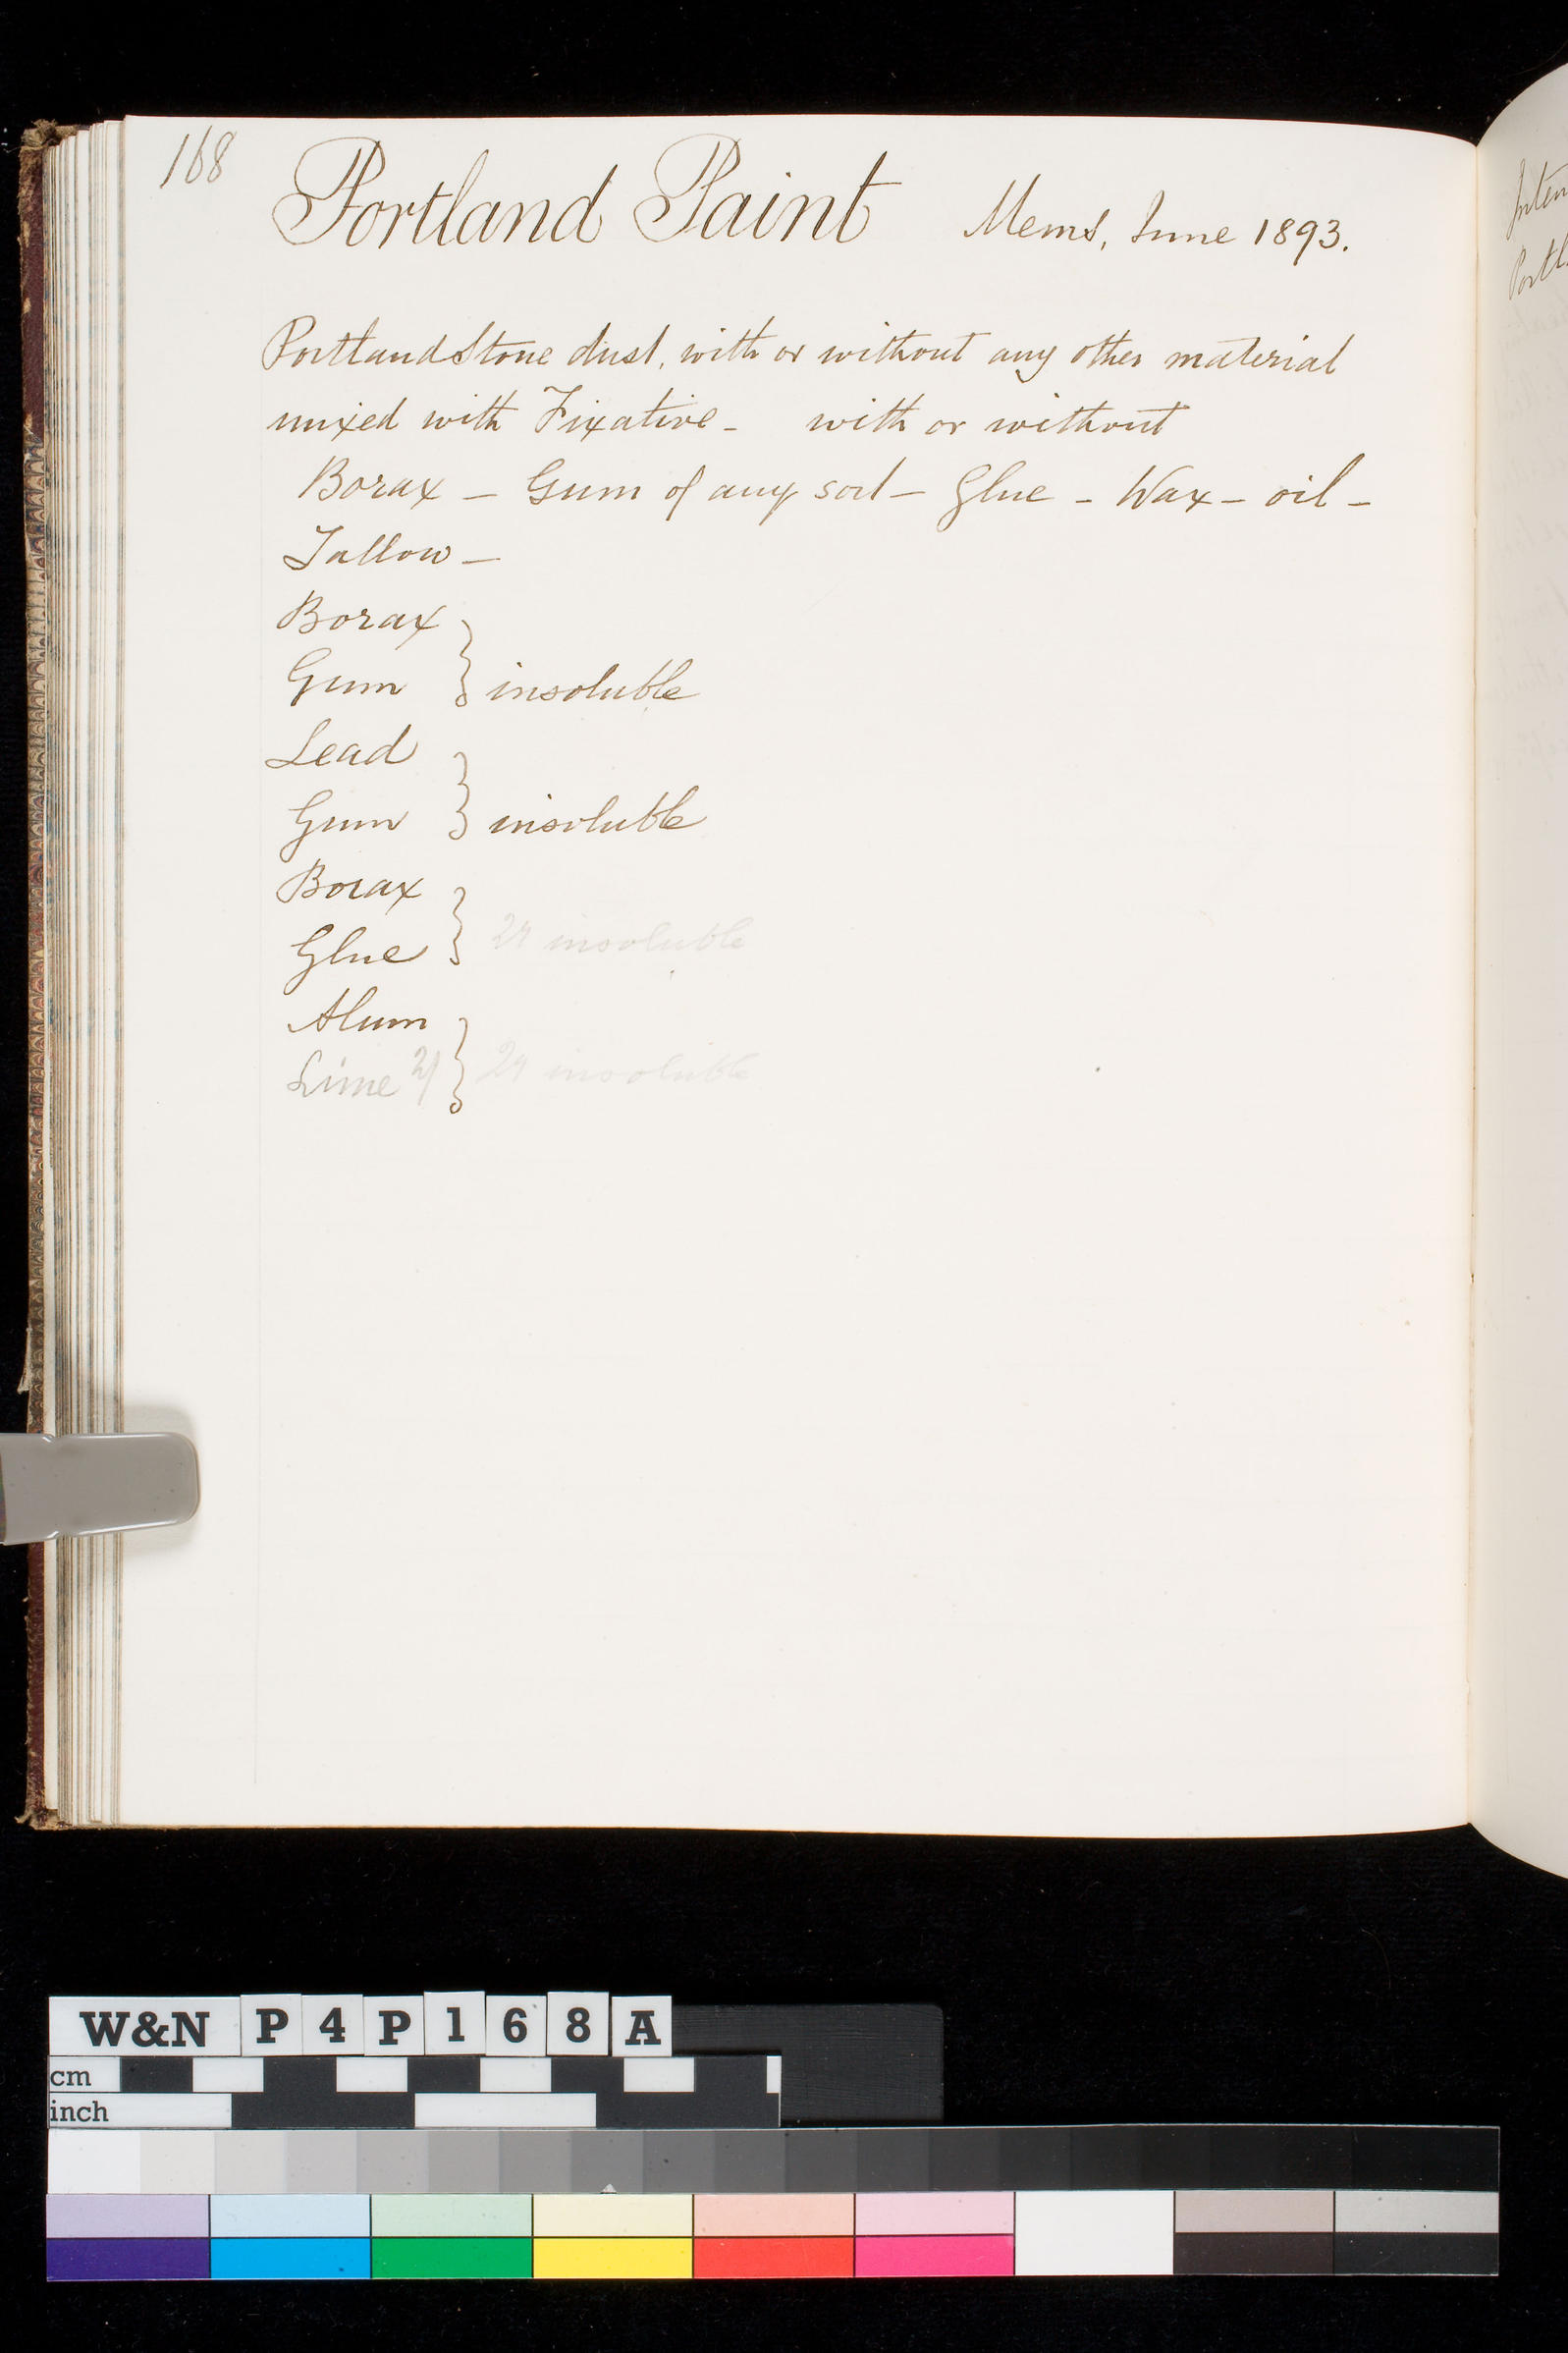 168
Portland Paint Mems, June 1893.
Portland Stone dust, with or without any other material
mixed with Fixative – with or without
Borax – Gum of any sort – Glue – Wax – oil –
Tallow –
Borax
Gum } insoluble
Lead
Gum } insoluble
Borax
Glue } insoluble
Alum
Lime } insoluble
W&N P4P168A
cm
inch